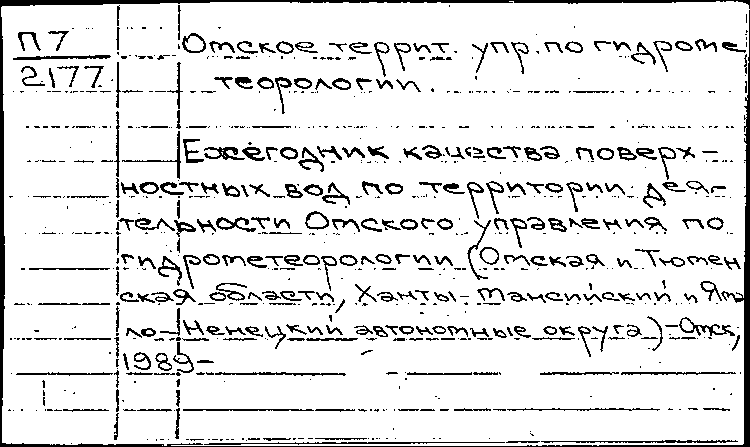 П7
2177
Омское террит. упр. по гидроме
теорологии.
Ежегодник качества поверх-
ностных вод по территории дея-
тельности Омского управления по
гидрометеорологии (Омская и Тюмен
ская области, Ханты-Мансийский и Яма
ло-Ненецкий автономные округа)-Омск,
1989-